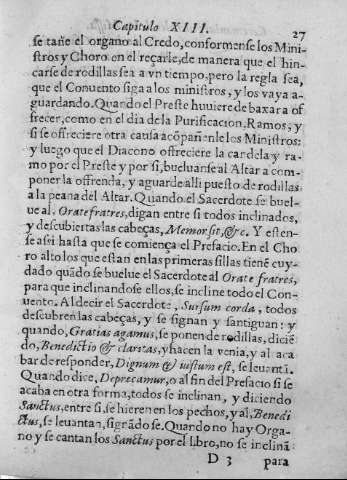 Capitulo XIII.
27
se tañe el organo al Credo, conformense los Mini-
stros y Choro en el reçarle, de manera que el hin-
carse de rodillas sea a vn tiempo, pero la regla sea,
que el Conuento siga a los ministros, y los vaya a-
guardando. Quando el Preste huuiere de baxar a of
frecer, como en el dia de la Purificacion, Ramos, y
si se offreciere otra causa acõpañenle los Ministros:
y luego que el Diacono offreciere la candela y ra-
mo por el Preste y por si, bueluanse al Altar a com-
poner la offrenda, y aguarde alli puesto de rodillas
a la peana del Altar. Quando el Sacerdote se buel-
ue al. Orate fratres, digan entre si todos inclinados,
y descubiertas las cabeças, Memor sit, &c. Y esten-
se assi hasta que se comiença el Prefacio. En el Cho
ro alto los que estan en las primeras sillas tienē cuy-
dado quãdo se buelue el Sacerdote al Orate fratres,
para que inclinandose ellos, se incline todo el Con-
uento. Al decir el Sacerdote, Sursum corda, todos
descubren las cabeças, y se signan y santiguan: y
quando, Gratias agamus, se ponen de rodillas, diciē
do, Benedictio & claritas, y hacen la venia, y al aca
bar de responder, Dignum & iustum est, se leuantã.
Quando dice, Deprecamur, o al fin del Prefacio si se
acaba en otra forma, todos se inclinan, y diciendo
Sanctus, entre si, se hieren en los pechos, y al, Benedi
ctus, se leuantan, signãdo se. Quando no hay Orga-
no y se cantan los Sanctus por el libro, no se inclinã
D 3 para